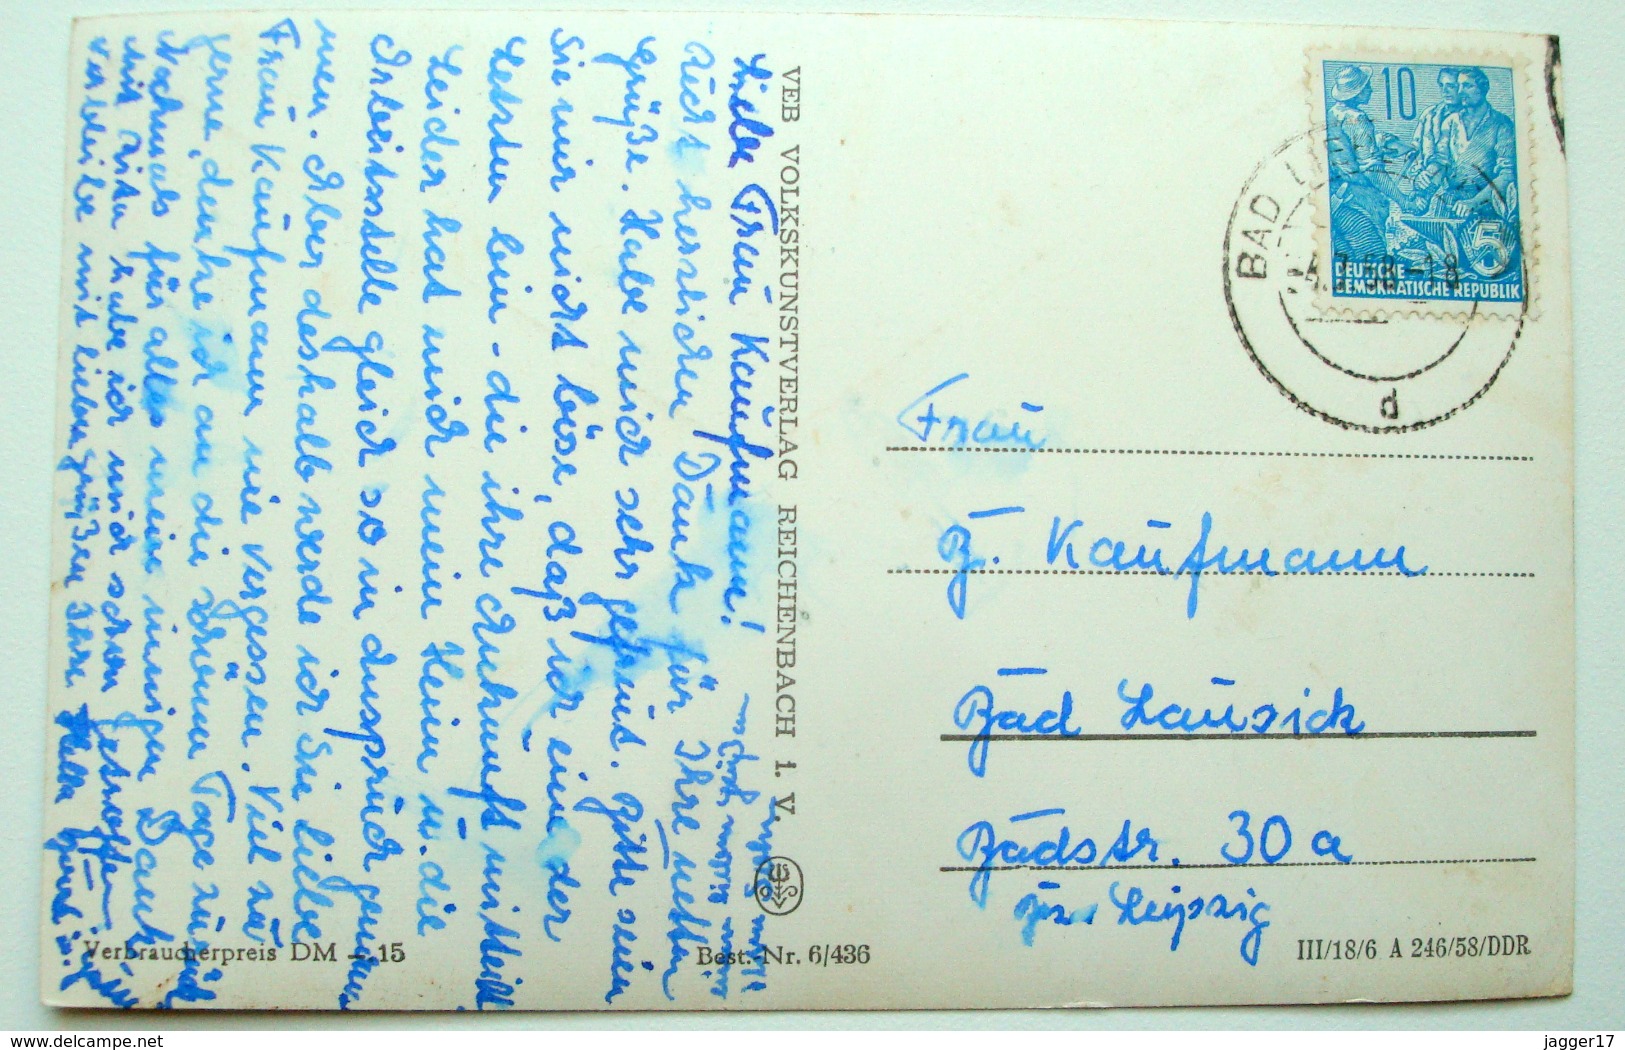 Liebe Frau Kaufmann!
Recht herzlichen Dank für Ihre netten
Grüße. Habe mich sehr gefreut. Bitte seien
Sie mir nicht böse, daß ich eine der
Letzten bin - die ihre Ankunft mitteilt
Leider hat mich mein Heim u. die
Arbeitsstelle gleich so in Anspruch genom
men. Aber deshalb werde ich Sie liebe
Frau Kaufmann nie vergessen. Viel zu
gerne, denke ich an die schönen Tage zurück
Nochmals für alles mein innigen Dank
habe ich mich schon getroffen
verbleibe mit lieben Grüßen Ihre Hella
VEB VOLKSKUNSTVERLAG REICHENBACH I. V.
Verbraucherpreis DM –.15
Best.-Nr. 6/436
10
5
DEUTSCHE
DEMOKRATISCHE REPUBLIK
BAD
-18
d
Frau
Kaufmann
Bad Lausick
Badstr. 30 a
Leipzig
III/18/6 A 246/58/DDR
delcampe.net
jagger17